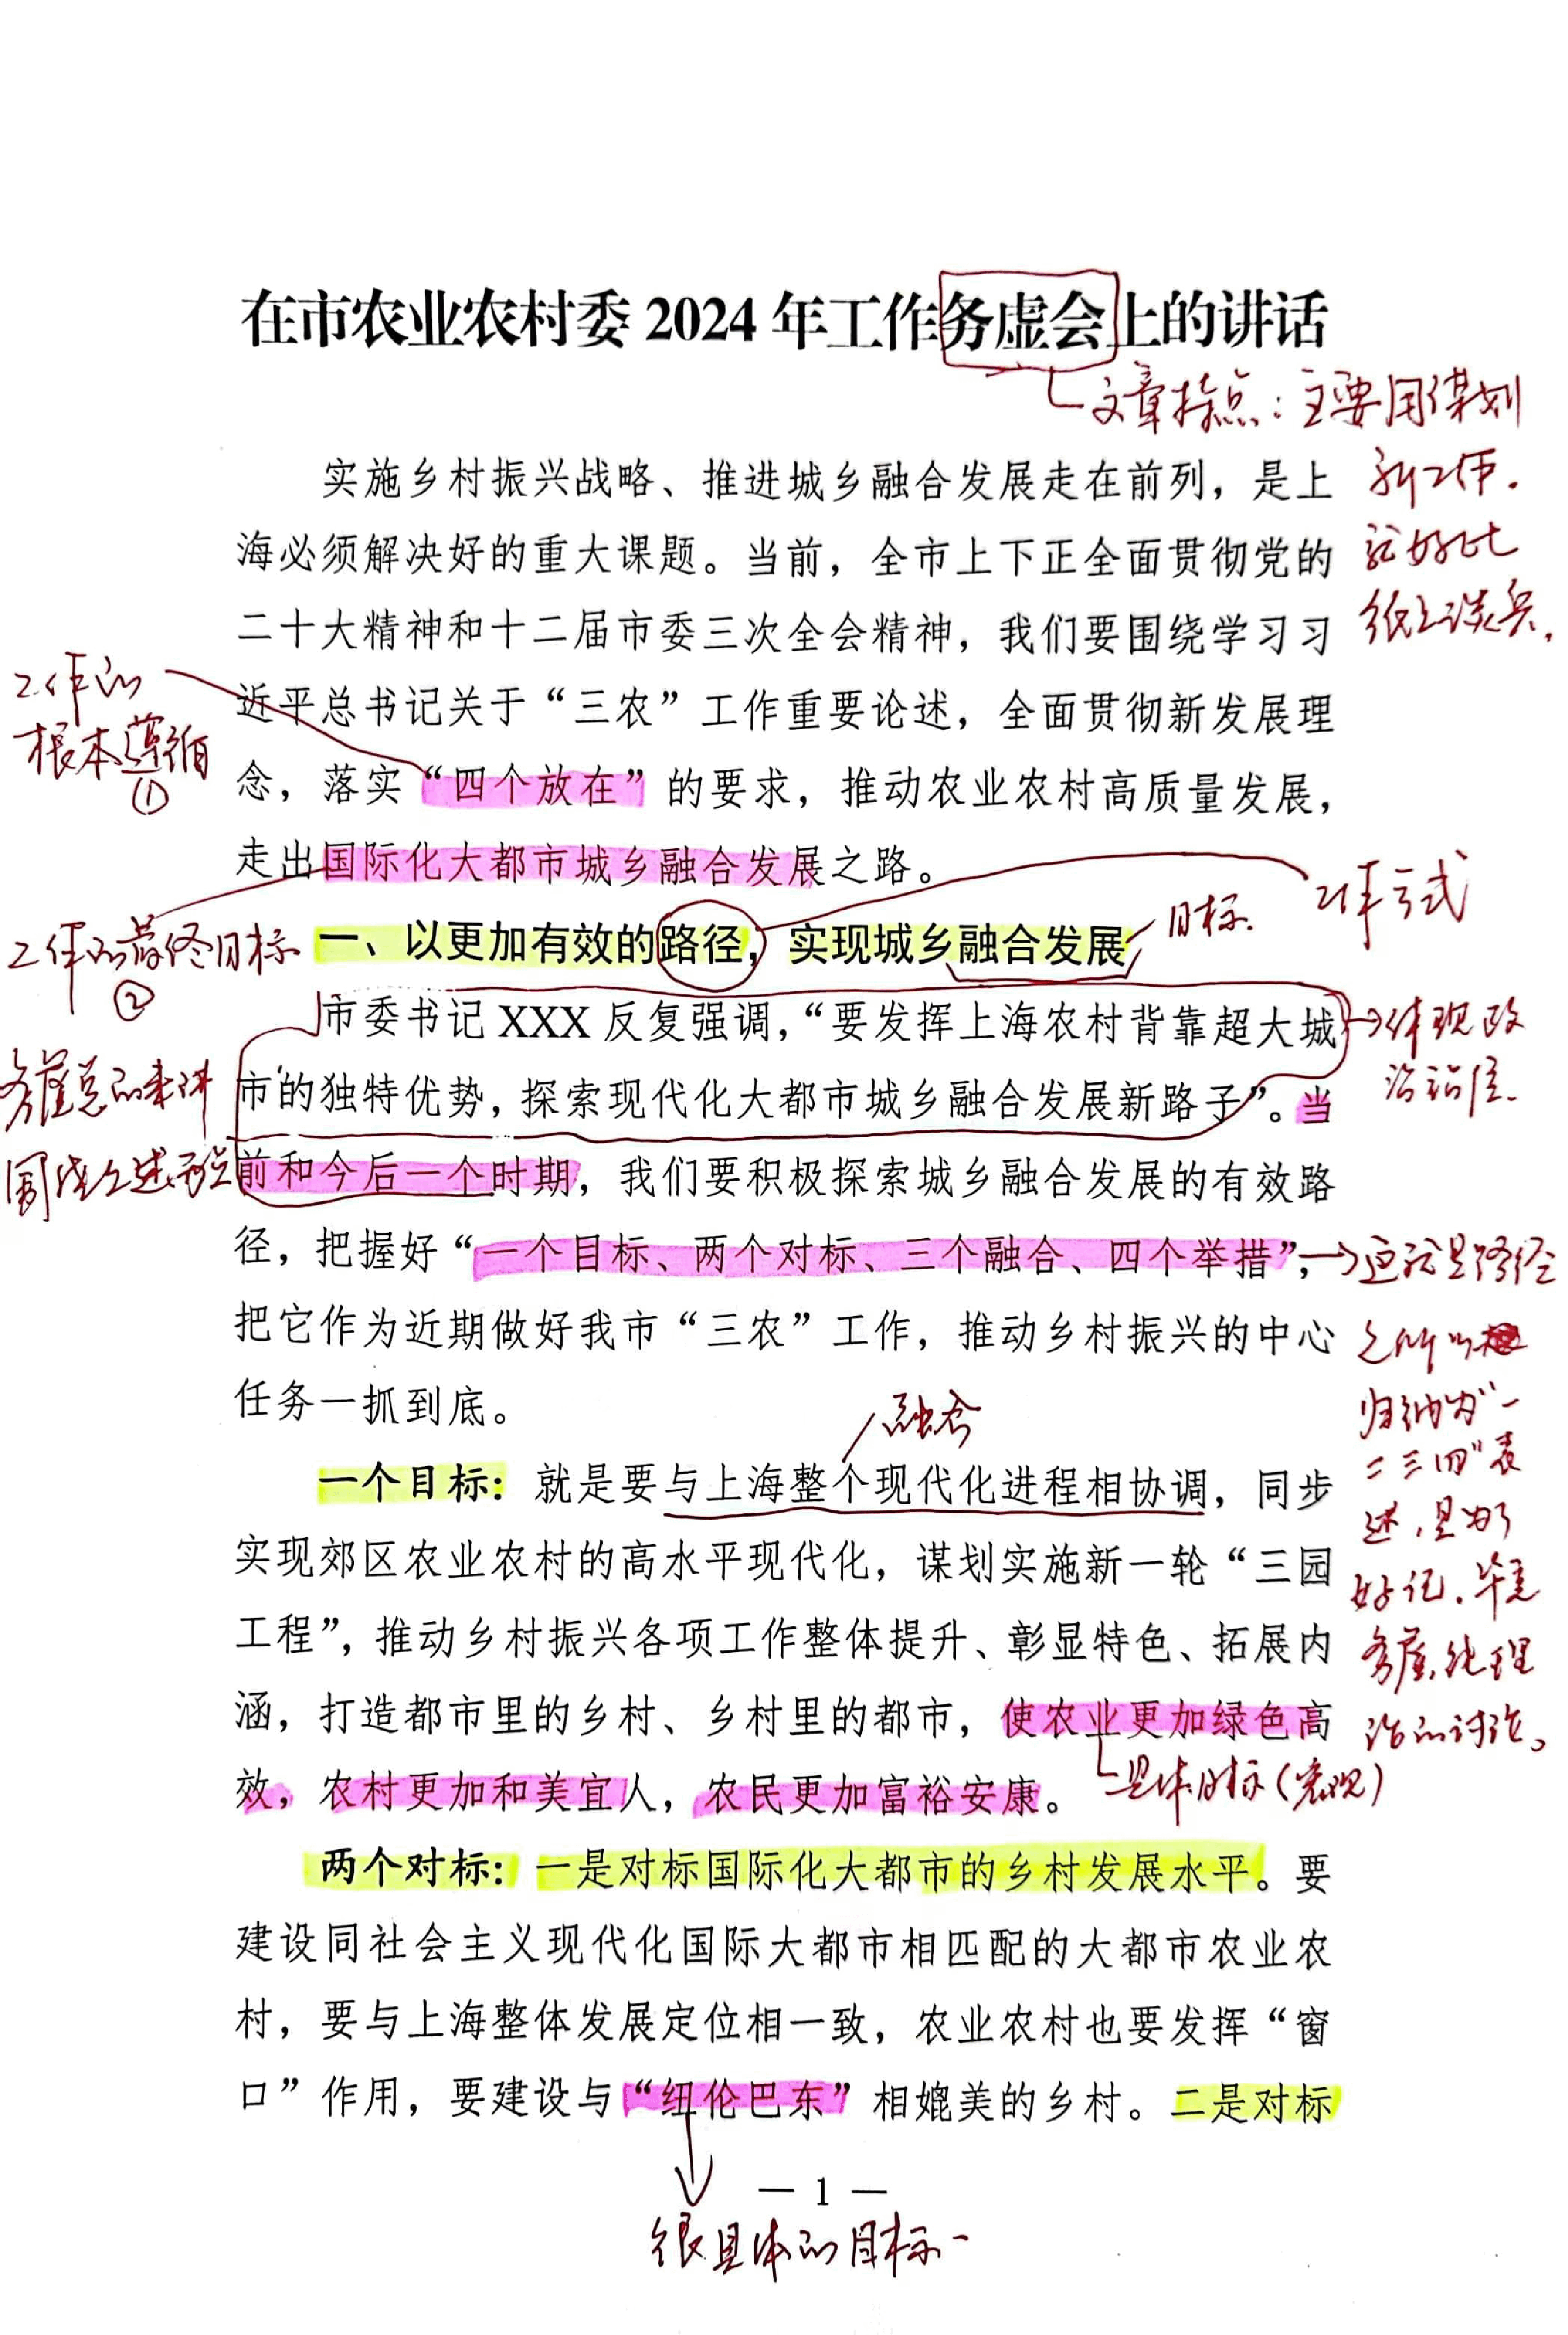 在市农业农村委 2024 年工作务虚会上的讲话
文章特点：主要用谋划
新工作.
就好比
纸上谈兵,
实施乡村振兴战略、推进城乡融合发展走在前列，是上
海必须解决好的重大课题。当前，全市上下正全面贯彻党的
二十大精神和十二届市委三次全会精神，我们要围绕学习习
近平总书记关于“三农”工作重要论述，全面贯彻新发展理
念，落实“四个放在”的要求，推动农业农村高质量发展，
走出国际化大都市城乡融合发展之路。
工作的
根本遵循
①
工作的最终目标
②
一、以更加有效的路径，实现城乡融合发展
目标.
工作方式
市委书记 XXX 反复强调，“要发挥上海农村背靠超大城
市的独特优势，探索现代化大都市城乡融合发展新路子”。当
前和今后一个时期，我们要积极探索城乡融合发展的有效路
径，把握好“一个目标、两个对标、三个融合、四个举措”，
把它作为近期做好我市“三农”工作，推动乡村振兴的中心
任务一抓到底。
体现政
治站位.
务虚总的来讲
围绕上述两点
这就是路径
之所以
归纳为“一
二三四”表
述，是为了
好记.毕竟
务虚,纯理
论的讨论。
融合
一个目标：就是要与上海整个现代化进程相协调，同步
实现郊区农业农村的高水平现代化，谋划实施新一轮“三园
工程”，推动乡村振兴各项工作整体提升、彰显特色、拓展内
涵，打造都市里的乡村、乡村里的都市，使农业更加绿色高
效，农村更加和美宜人，农民更加富裕安康。
具体目标(宏观)
两个对标：一是对标国际化大都市的乡村发展水平。要
建设同社会主义现代化国际大都市相匹配的大都市农业农
村，要与上海整体发展定位相一致，农业农村也要发挥“窗
口”作用，要建设与“纽伦巴东”相媲美的乡村。二是对标
— 1 —
很具体的目标